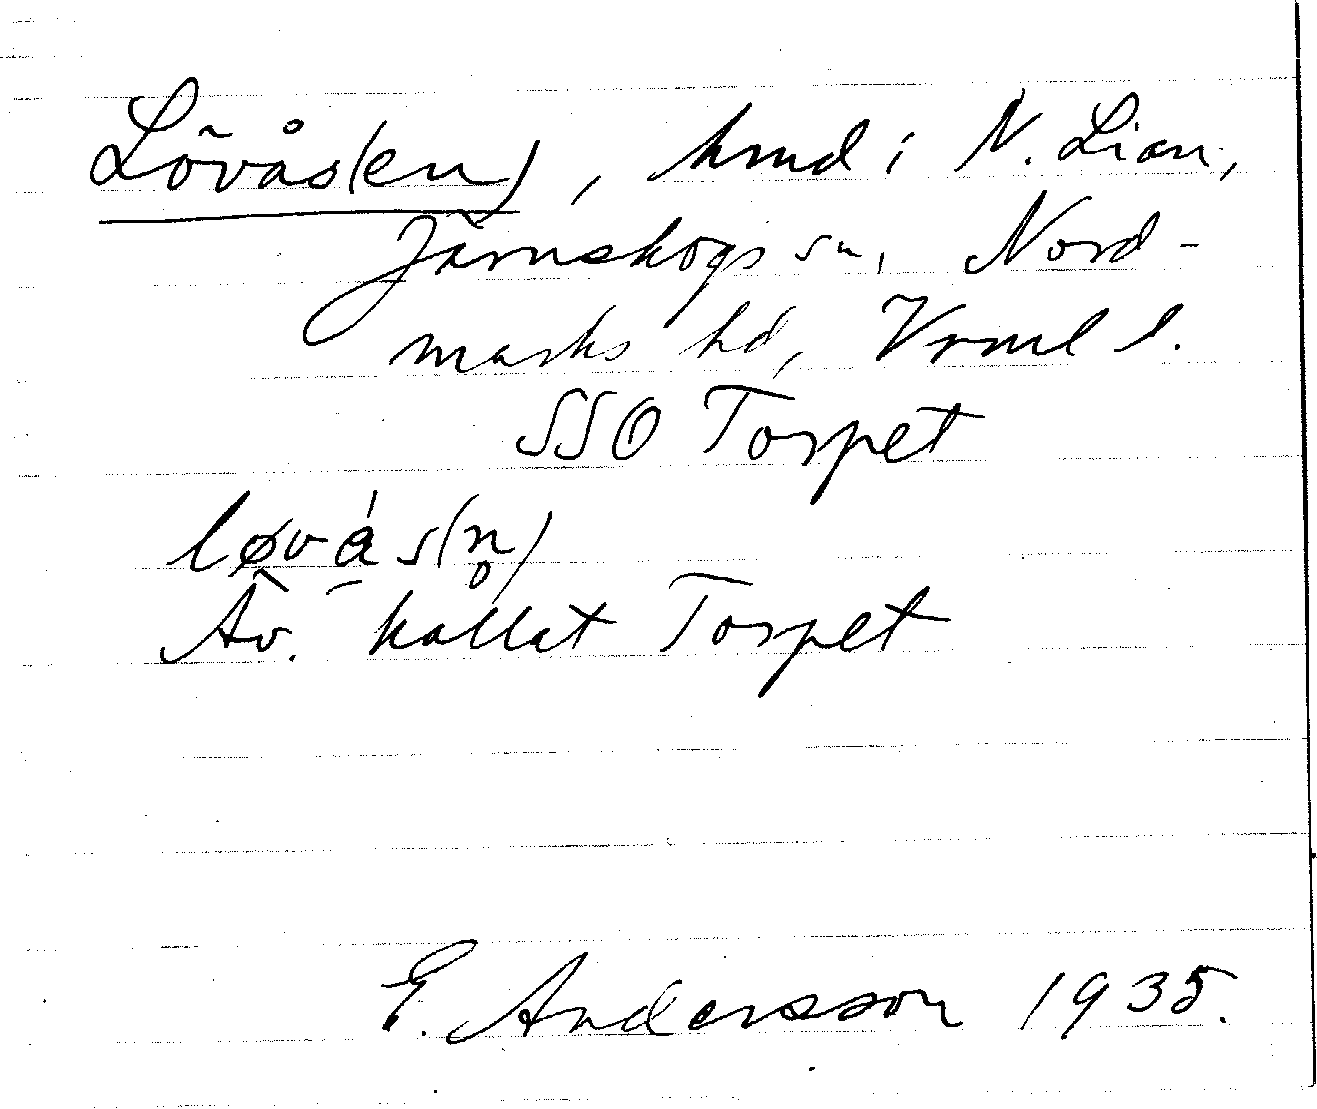 Lövås(en), hmd i N. Lian,
Järnskogs sn, Nord-
marks hd, Vrml l.
SSO Torpet
løvás(n̥)
Äv. kallat Torpet
E. Andersson 1935.